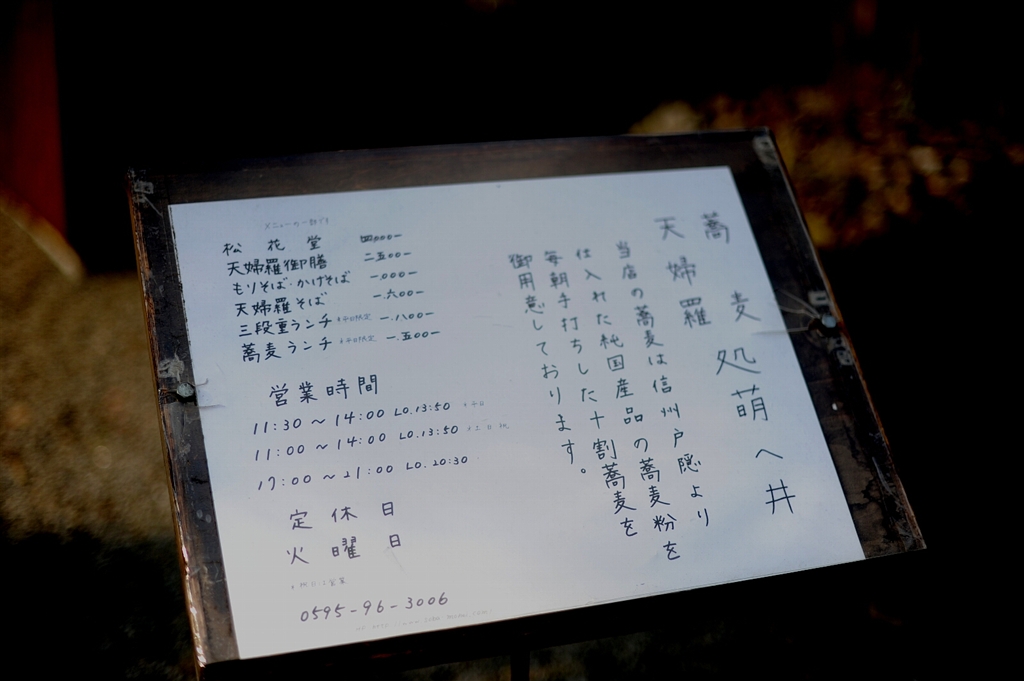 蕎麦処萌へ井
天婦羅
当店の蕎麦は信州戸隠より
仕入れた純国産品の蕎麦粉を
毎朝手打ちした十割蕎麦を
御用意しております。
メニューの一部です
松花堂 四.000-
天婦羅御膳 二.五00-
もりそば・かけそば 一.000-
天婦羅そば 一.六00-
三段重ランチ 平日限定 一.八00-
蕎麦ランチ 平日限定 一.五00-
営業時間
11:30～14:00 LO.13:50 平日
11:00～14:00 LO.13:50 土日祝
17:00～21:00 LO.20:30
定休日
火曜日
0595-96-3006